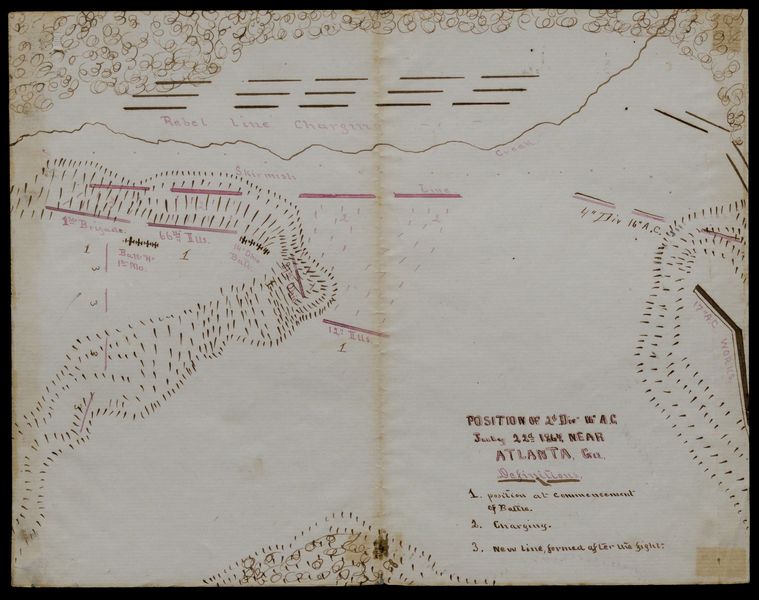 Rebel Line Charging
Creek
Skirmish
Line
2
2
4th Div 16th A.C.
1st Brigade.
66th Ills.
1
Batt. H.
1st Mo.
1
3
3
3
12th Ills.
1
17th A.C. WORKS.
POSITION OF 2d Div 16th A.C.
July 22d 1864, NEAR
ATLANTA, Ga.
Definitions
1. position at commencement
of Battle.
2. Charging.
3. New Line, formed after the fight.